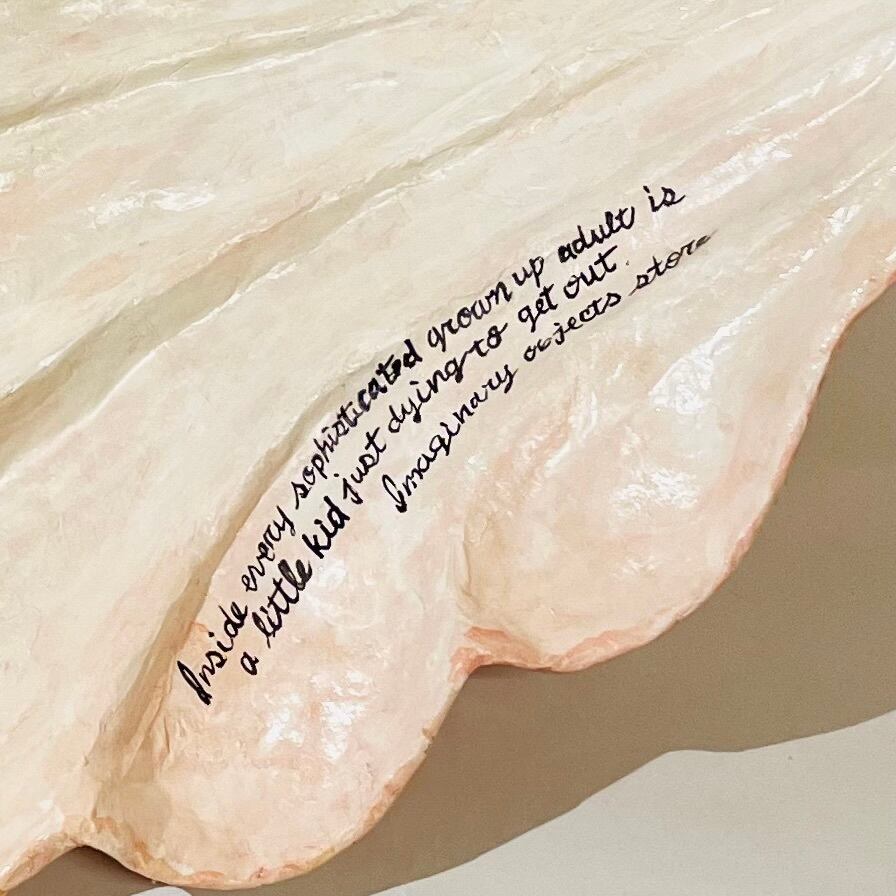 Inside every sophisticated grown up adult is
a little kid just dying to get out.
Imaginary objects store